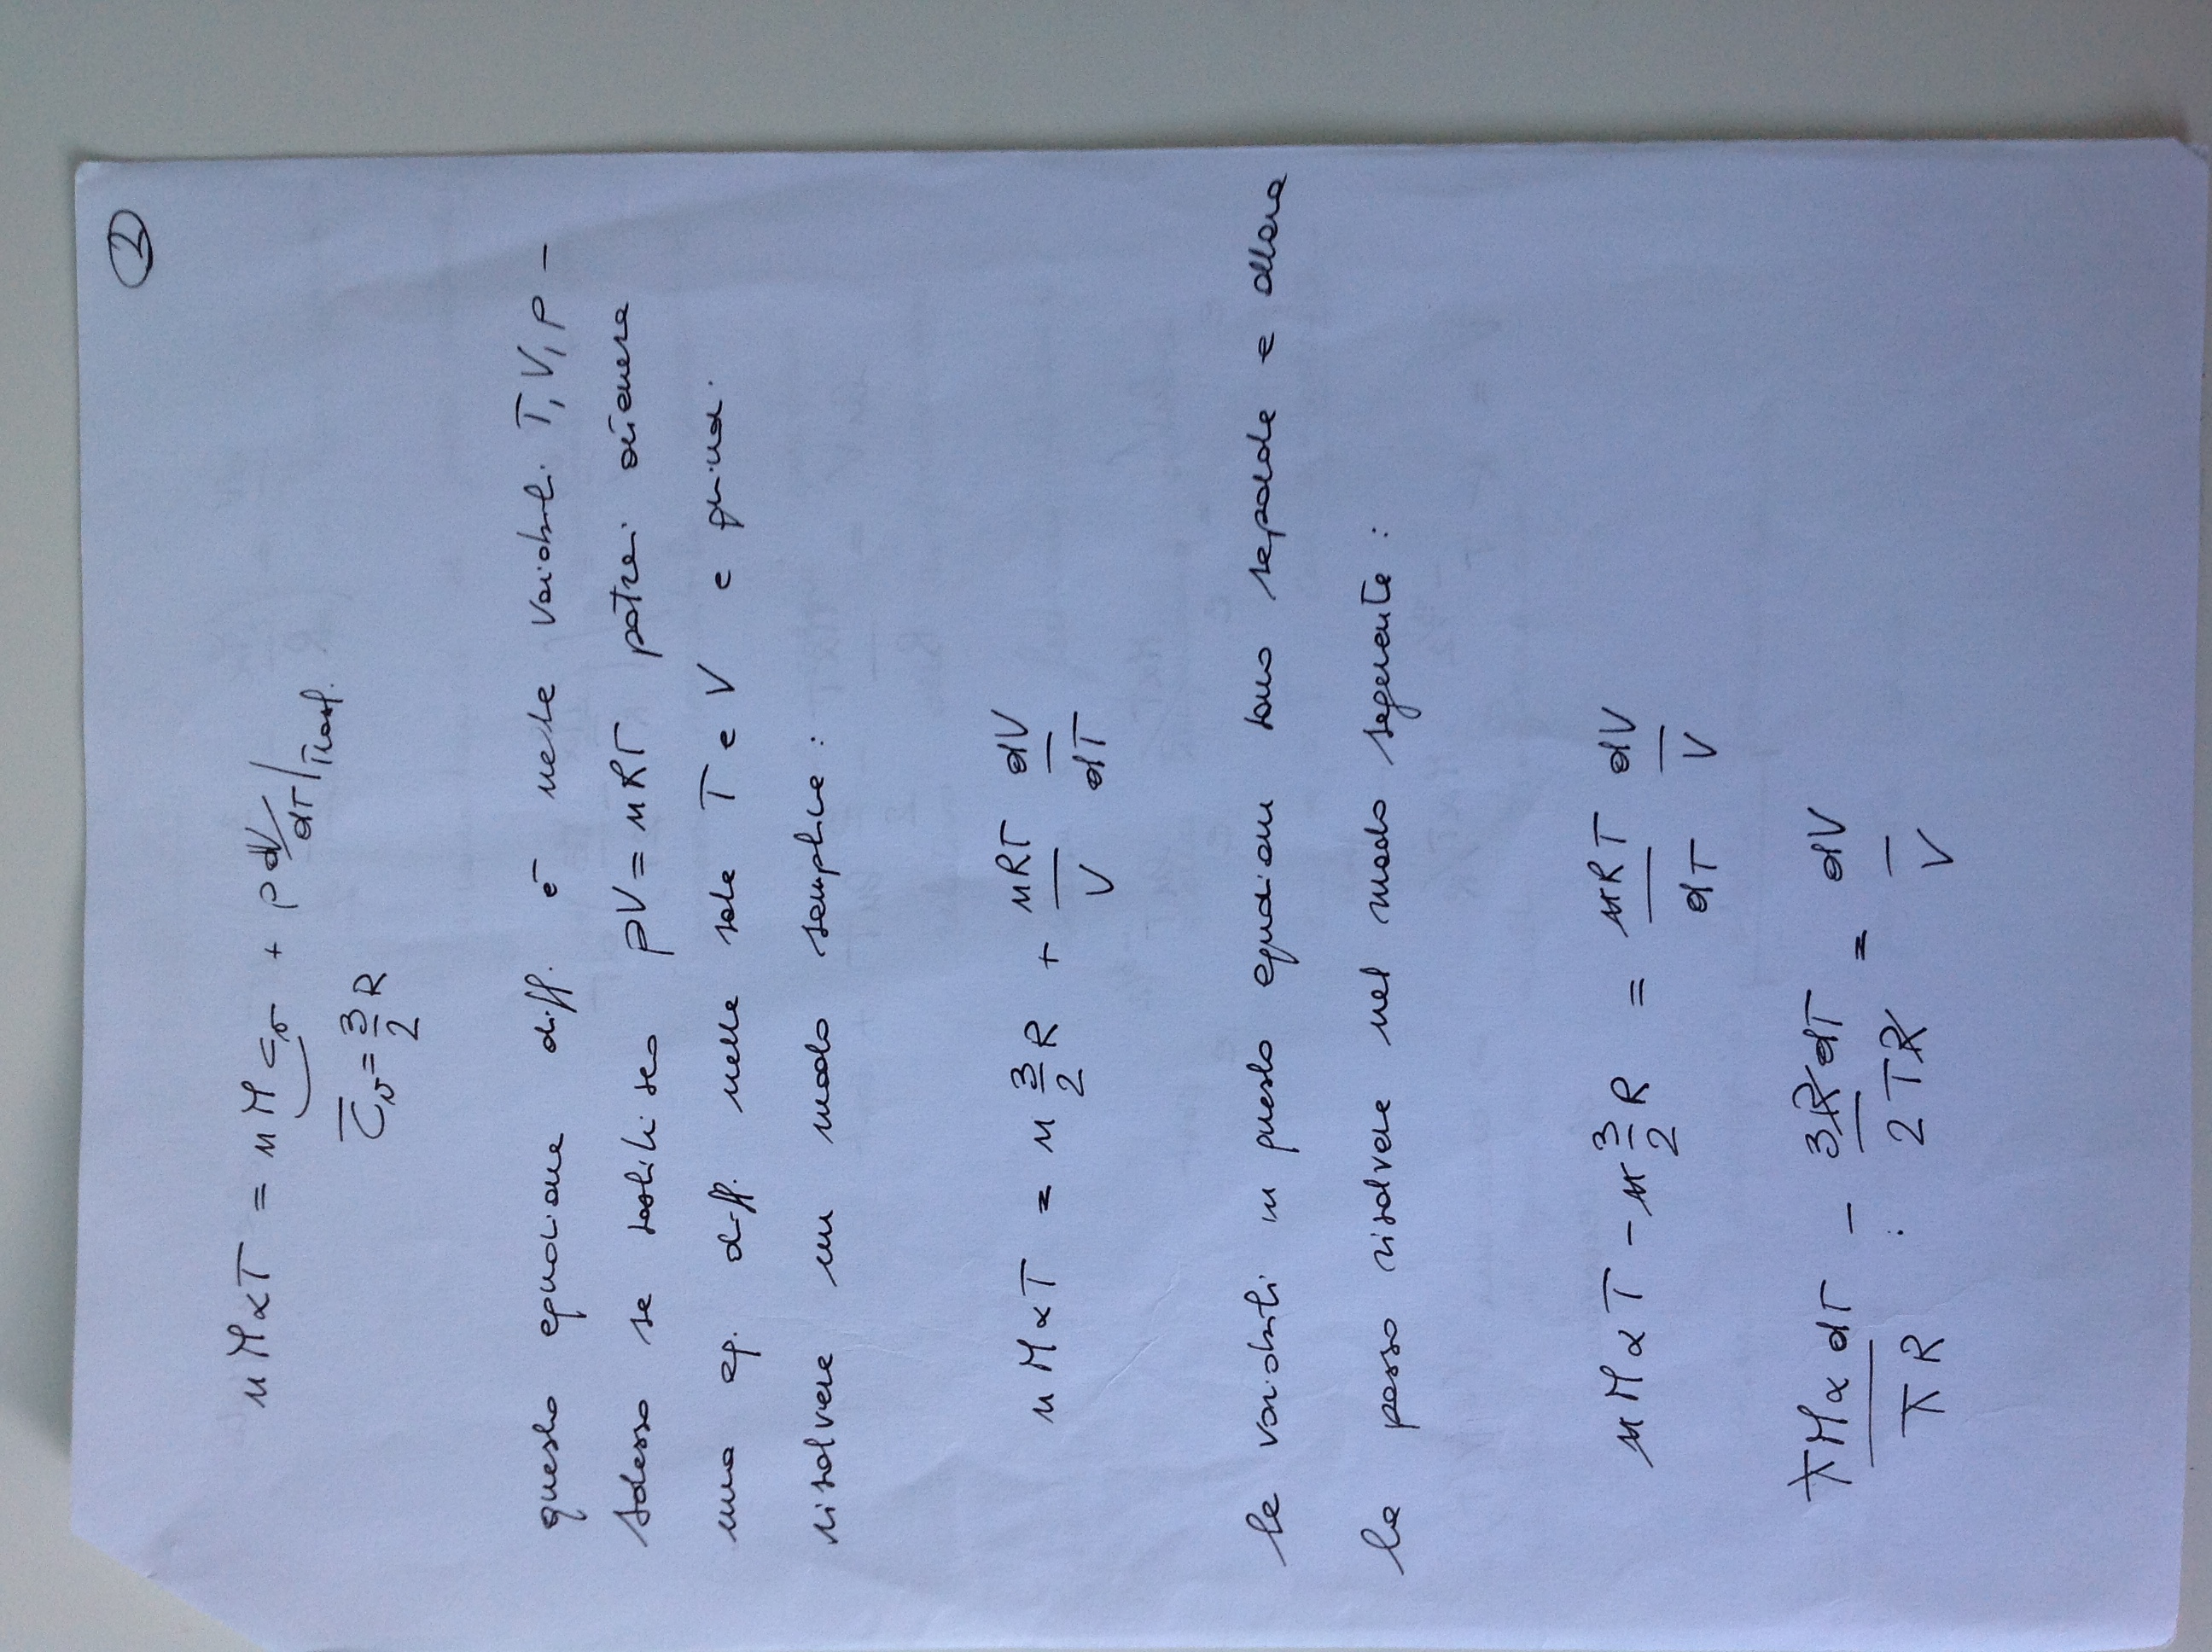 2
nMαT = nM c_v + p dV/dT |Trasf.
C̄_v = 3/2 R
questa equazione diff. è nelle variabili T, V, p -
Adesso se sostituisco pV = nRT potrei ottenere
una eq. diff. nelle sole T e V e quindi
risolvere in modo semplice :
nMαT = n 3/2 R + nRT/V dV/dT
le variabili in questa equazione sono separate e allora
la posso risolvere nel modo seguente :
nMαT - n 3/2 R = nRT/dT dV/V
TMα dT/TR - 3R dT/2TR = dV/V